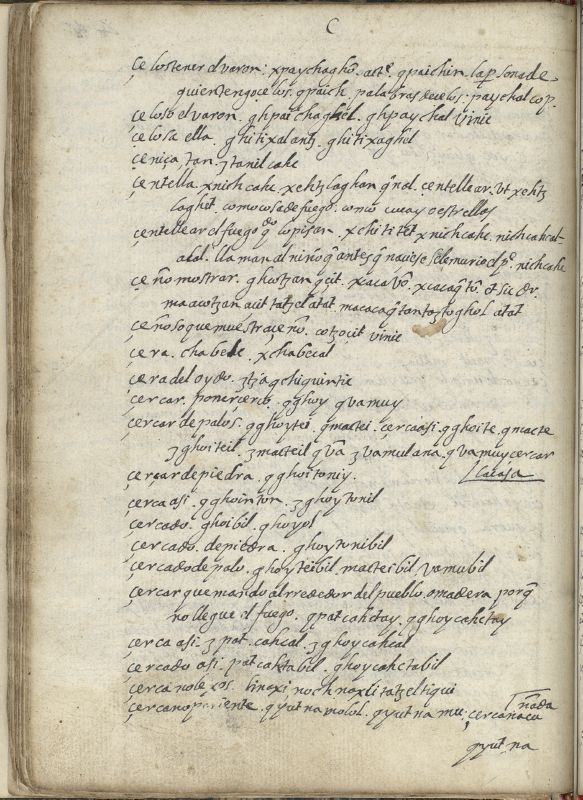 C
çelos tener el varon. xpaychaghō. act.e qpaichin. la p̱sona de
quien tengo celos. qpaich palabras de celos. paychal cop.
çeloso el varon. ghpaichaghel. ghpaychal vinic
çelosa ella. ghitixalantz. ghitixaghel
çeniça tan. ʒtanil cahc
çentella. xnich cahc xehtzlaghan qnal. centellear. vt xehtz
laghet. como cosa de fuego. como cueuas o estrellas
çentellear el fuego qdo lo pisan. xchititet xnich cahc. nich cahcal
alal. llaman al niño q̄ antes q̄ naciese se le murio el pe. nich cahc
çeño mostrar. ghotzan qcit. xcacabō.
maacotzan acit tatzel atat
çeñoso que muestra çeño. cotzocit vinic
çera. chabec. xchabecal
çera del oydo. ʒtzaqchiquintic
çercar. poner cerco. qghoy qvamuy
çercar de palos. qghoytei. qmactei. çerca asi. qghoite qmacte
ʒghoiteil. ʒmacteil qva ʒvamulana. qvamuy cercar
la casa
çercar de piedra. qghoitoniy.
çerca asi. qghointon. ʒghoytonil
çercado. ghoibil. ghoyol
çercado. de piedra. ghoytonibil
çercado de palo. ghoyteibil. macteibil. vamubil
çercar quemando al rrededor del pueblo. o madera porq̄
no llegue el fuego. qpatcahctay. qghoycahctay
çerca asi. ʒpat cahcal. ʒghoycahcal
çercado asi. patcahctabil. ghoycahctabil
çerca no lexos. noch
çercano pariente. qyut na molol. qyut na mu; cercana cu
ñada
qyut na